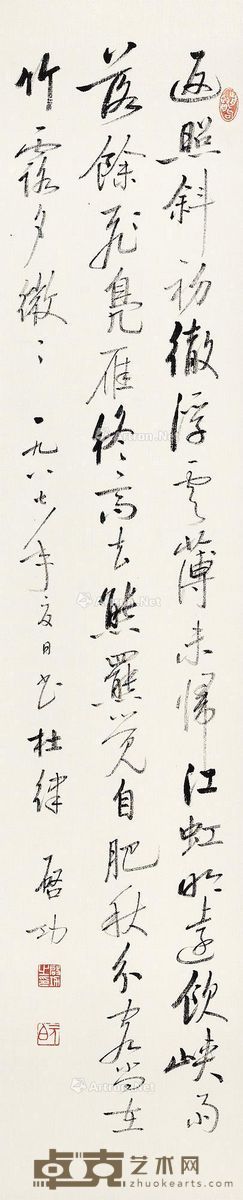 返照斜初徹浮雲薄未歸江虹明遠飲峽雨
落餘飛鳧雁終高去熊羆覺自肥秋分客尚在
竹露夕微〻一九八七年夏日書杜律 啟功
卓克艺术网
www.zhuokearts.com